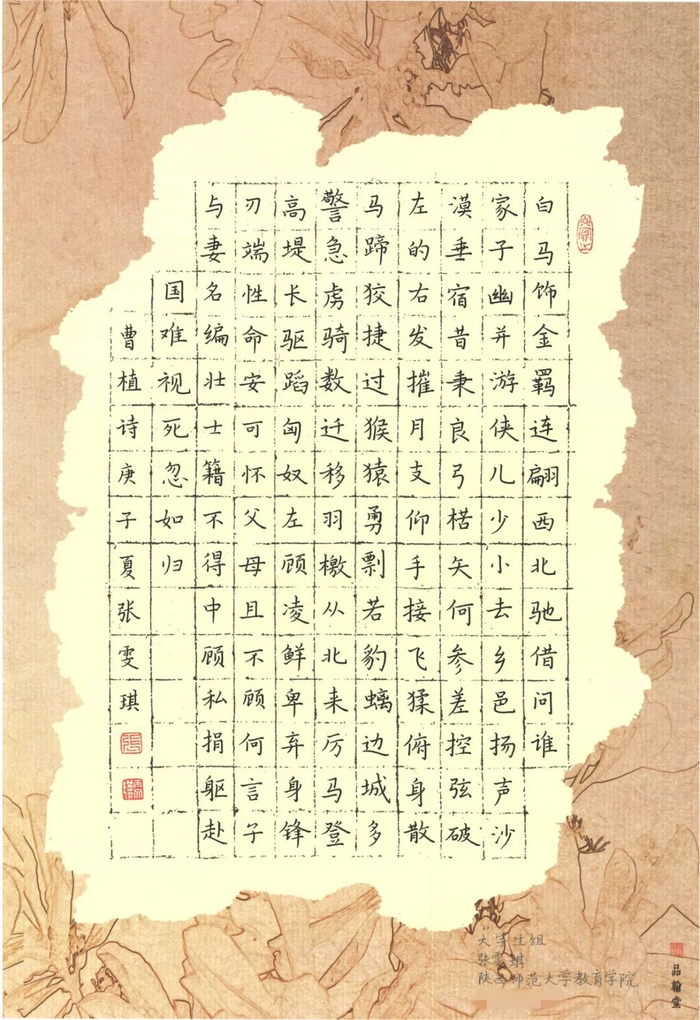 白马饰金羁连翩西北驰借问谁
家子幽并游侠儿少小去乡邑扬声沙
漠垂宿昔秉良弓楛矢何参差控弦破
左的右发摧月支仰手接飞猱俯身散
马蹄狡捷过猴猿勇剽若豹螭边城多
警急虏骑数迁移羽檄从北来厉马登
高堤长驱蹈匈奴左顾凌鲜卑弃身锋
刃端性命安可怀父母且不顾何言子
与妻名编壮士籍不得中顾私捐躯赴
国难视死忽如归
曹植诗庚子夏张雯琪
大学生组
张雯琪
陕西师范大学教育学院
品翰堂